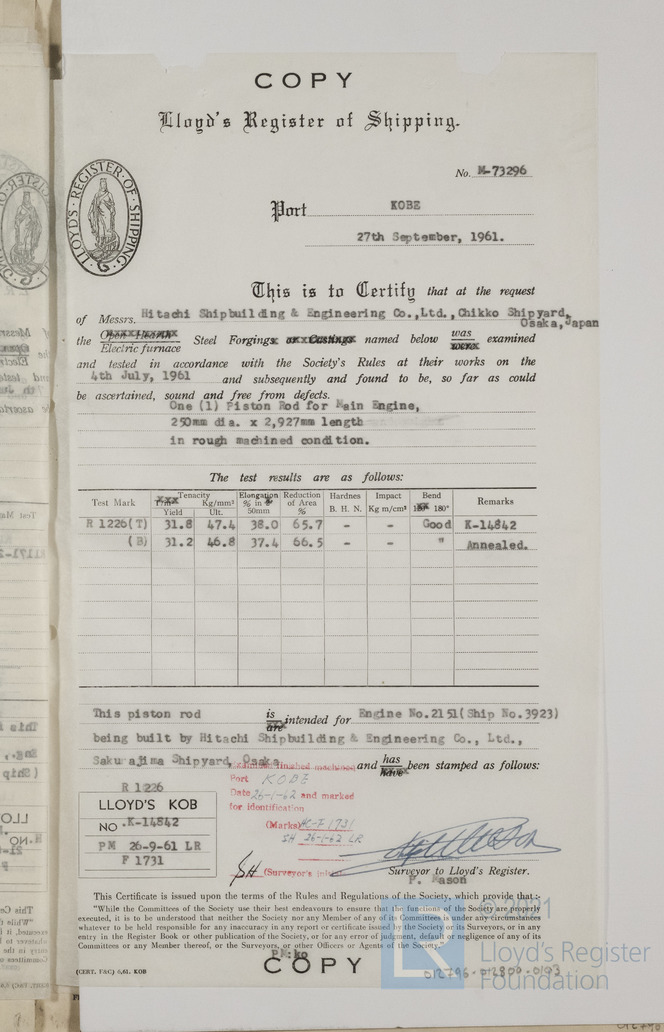 COPY
Lloyd's Register of Shipping.
No. M-73296
LLOYD'S · REGISTER · OF · SHIPPING
Port KOBE
27th September, 1961.
This is to Certify that at the request
of Messrs. Hitachi Shipbuilding & Engineering Co.,Ltd.,Chikko Shipyard,
Osaka,Japan
the Open Hearth Electric furnace Steel Forgings or Castings named below was were examined
and tested in accordance with the Society's Rules at their works on the
4th July, 1961 and subsequently and found to be, so far as could
be ascertained, sound and free from defects.
One (1) Piston Rod for Main Engine,
250mm dia. x 2,927mm length
in rough machined condition.
The test results are as follows:
Test Mark Tenacity Kg/mm² Yield Ult. Elongation % in 50mm Reduction of Area % Hardnes B. H. N. Impact Kg m/cm² Bend 180° Remarks
R 1226(T) 31.8 47.4 38.0 65.7 - - Good K-14842
(B) 31.2 46.8 37.4 66.5 - - " Annealed.
This piston rod is are intended for Engine No.2151(Ship No.3923)
being built by Hitachi Shipbuilding & Engineering Co., Ltd.,
Sakurajima Shipyard, Osaka and has have been stamped as follows:
R 1226
LLOYD'S KOB
NO .K-14842
PM 26-9-61 LR
F 1731
finished machined
Port KOBE
Date 26-1-62 and marked
for identification
(Marks) HC-F 1731
SH 26-1-62 LR
SH (Surveyor's
Surveyor to Lloyd's Register.
P. Mason
This Certificate is issued upon the terms of the Rules and Regulations of the Society, which provide that :-
"While the Committees of the Society use their best endeavours to ensure that the functions of the Society are properly
executed, it is to be understood that neither the Society nor any Member of any of its Committees is under any circumstances
whatever to be held responsible for any inaccuracy in any report or certificate issued by the Society or its Surveyors, or in any
entry in the Register Book or other publication of the Society, or for any error of judgment, default or negligence of any of its
Committees or any Member thereof, or the Surveyors, or other Officers or Agents of the Society."
PM:ko
COPY
(CERT. F&C) 6,61. KOB
© 2021
LR
Lloyd's Register
Foundation
012796-012800-0193